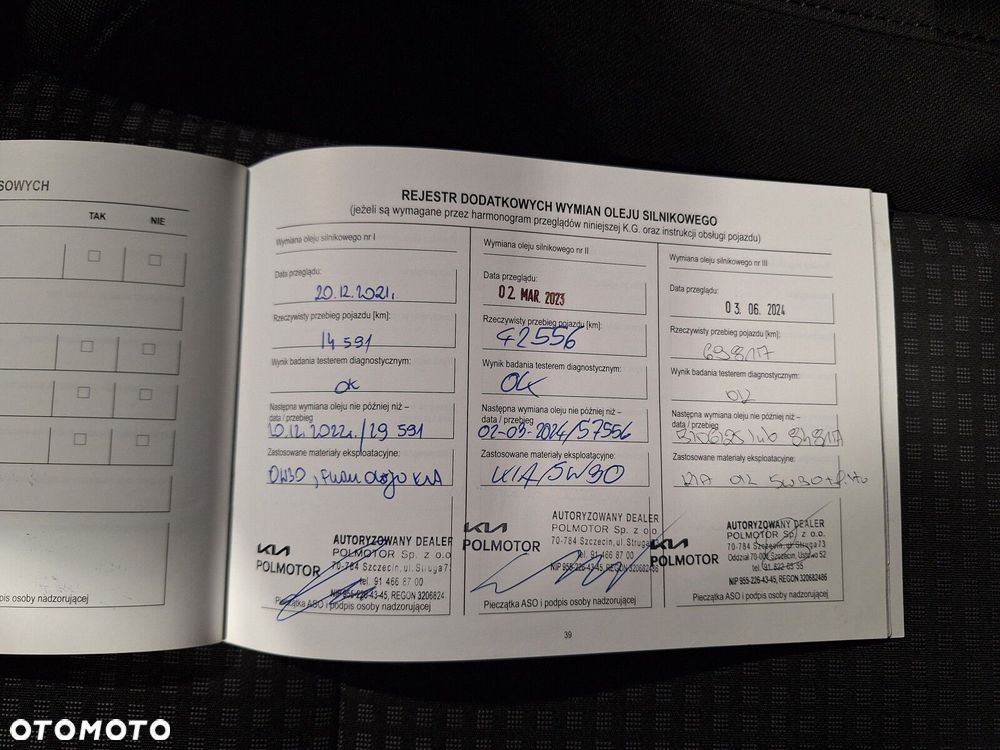 SOWYCH
TAK NIE
pis osoby nadzorującej
REJESTR DODATKOWYCH WYMIAN OLEJU SILNIKOWEGO
(jeżeli są wymagane przez harmonogram przeglądów niniejszej K.G. oraz instrukcji obsługi pojazdu)
Wymiana oleju silnikowego nr I
Data przeglądu:
20.12.2021.
Rzeczywisty przebieg pojazdu [km]:
14 591
Wynik badania testerem diagnostycznym:
OK
Następna wymiana oleju nie później niż –
data / przebieg
20.12.2022r./29 591
Zastosowane materiały eksploatacyjne:
0W30, KIA
KIA
POLMOTOR
AUTORYZOWANY DEALER
POLMOTOR Sp. z o.o
70-784 Szczecin, ul. Struga 7
tel. 91 466 87 00
NIP 955-226-43-45, REGON 3206824
Pieczątka ASO i podpis osoby nadzorującej
Wymiana oleju silnikowego nr II
Data przeglądu:
02. MAR. 2023
Rzeczywisty przebieg pojazdu [km]:
42556
Wynik badania testerem diagnostycznym:
OK
Następna wymiana oleju nie później niż –
data / przebieg
02-03-2024/57556
Zastosowane materiały eksploatacyjne:
KIA/5W30
KIA
POLMOTOR
AUTORYZOWANY DEALER
POLMOTOR Sp. z o.o.
70-784 Szczecin, ul. Struga
tel. 91 466 87 00
NIP 955-226-43-45, REGON 320682486
Pieczątka ASO i podpis osoby nadzorującej
Wymiana oleju silnikowego nr III
Data przeglądu:
03. 06. 2024
Rzeczywisty przebieg pojazdu [km]:
69817
Wynik badania testerem diagnostycznym:
OK
Następna wymiana oleju nie później niż –
data / przebieg
lub 84817
Zastosowane materiały eksploatacyjne:
KIA 5W30
KIA
POLMOTOR
AUTORYZOWANY DEALER
70-784 Szczecin, ul. Struga 73
Oddział 70-000 Szczecin, Ustowo 52
tel. 91 822 65 55
NIP 955-226-43-45, REGON 320682486
Pieczątka ASO i podpis osoby nadzorującej
39
OTOMOTO